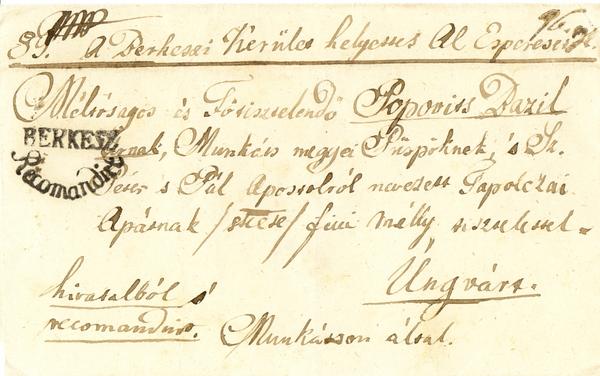 A Berkeszi Kerület helyettes Al Esperese
Méltóságos és Főtisztelendő Popovits Bazil
BERKESZ
Recomandirt
Urnak, Munkáts megyei Püspöknek, 's Sz.
Péter s Pál Apostolról nevezett Tapolczai
Apátnak / fiui mélly tisztelettel =
Úngvárt.
hivatalból s'
recomandirt. Munkátson által.